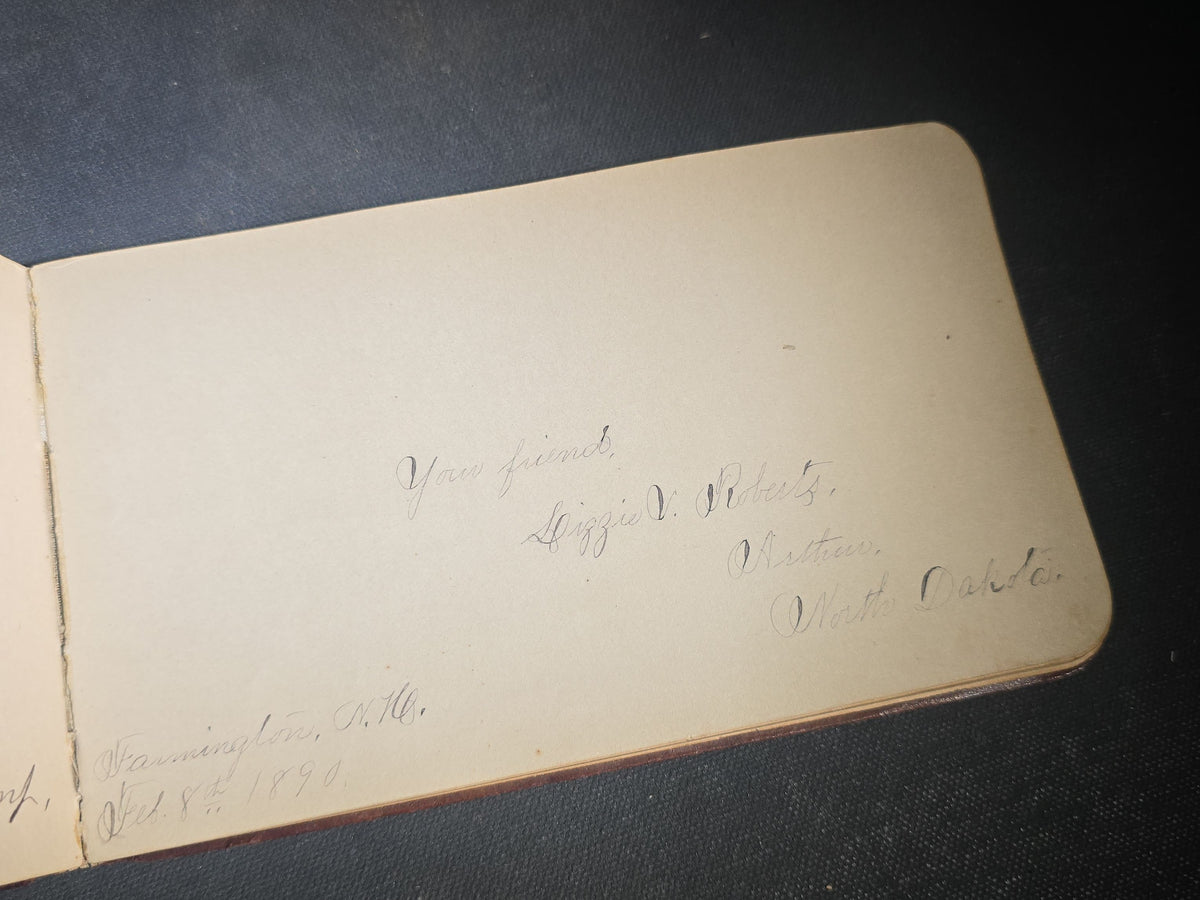 Your friend,
Lizzie V. Roberts.
Arthur,
North Dakota.
Farmington, N.H.
Feb. 8th 1890.